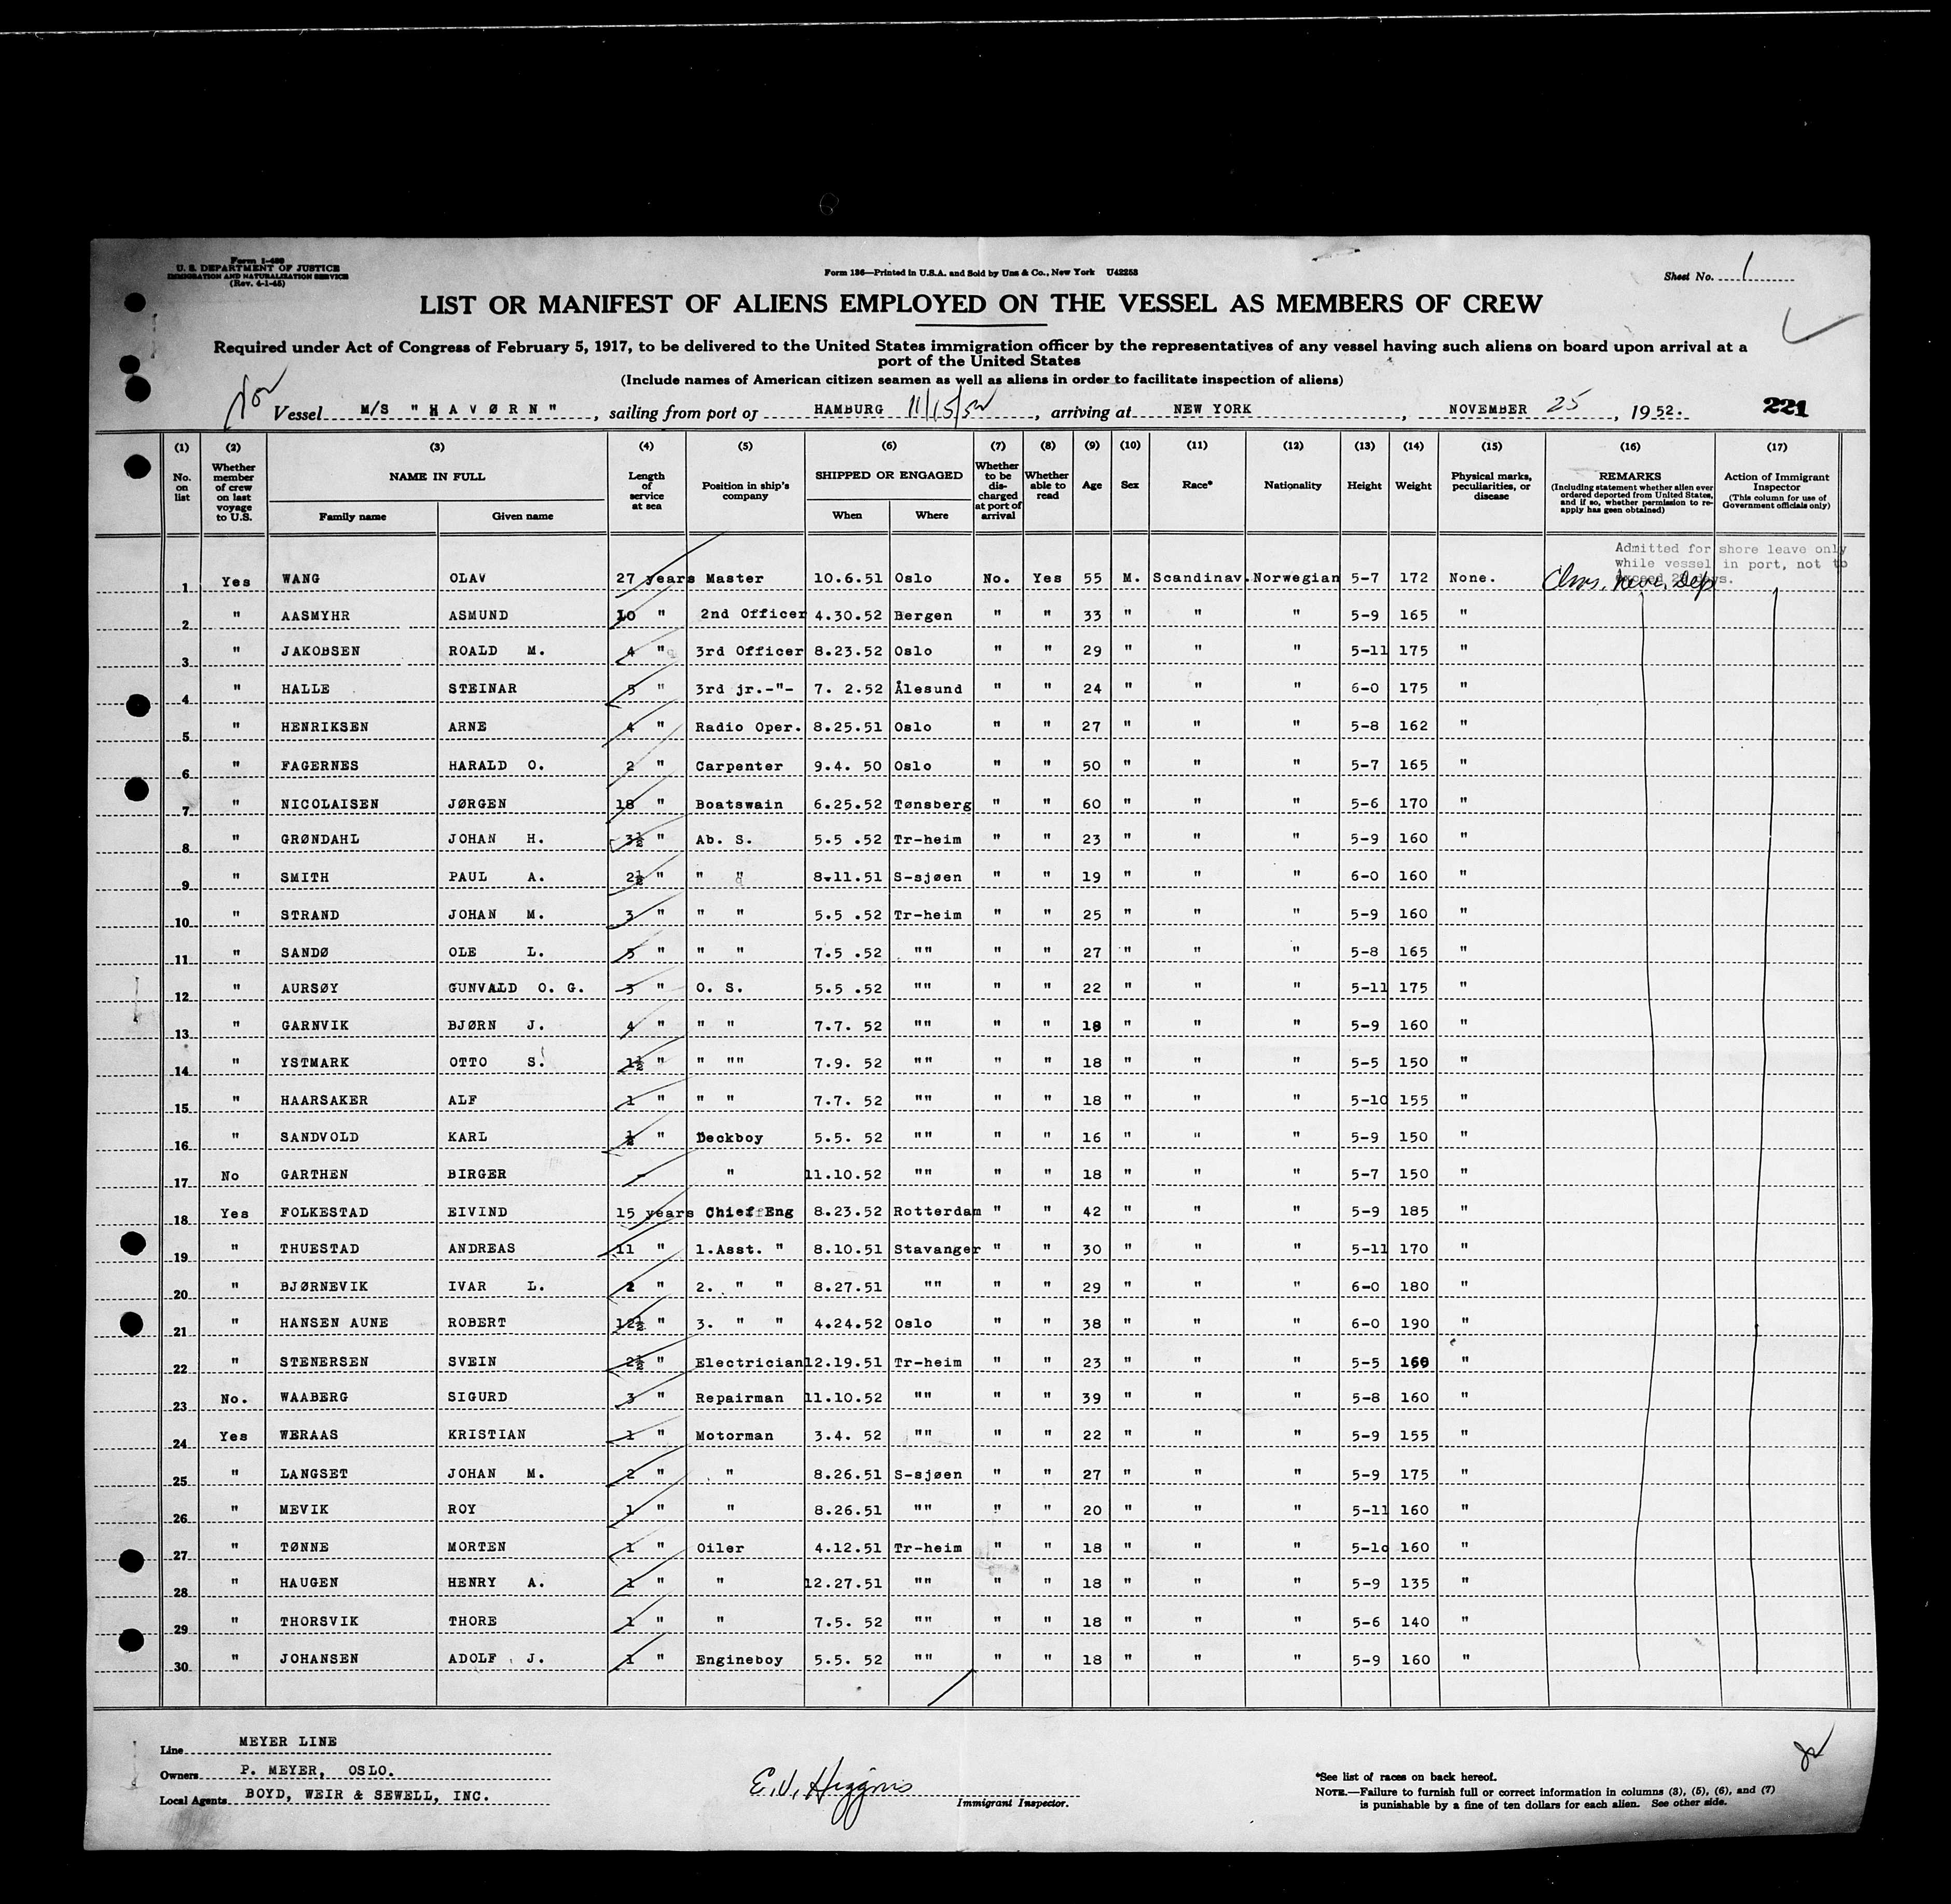 Form I-489
U. S. DEPARTMENT OF JUSTICE
IMMIGRATION AND NATURALIZATION SERVICE
(Rev. 4-1-45)
Form 136—Printed in U.S.A. and Sold by Unz & Co., New York U42253
Sheet No. 1
LIST OR MANIFEST OF ALIENS EMPLOYED ON THE VESSEL AS MEMBERS OF CREW
Required under Act of Congress of February 5, 1917, to be delivered to the United States immigration officer by the representatives of any vessel having such aliens on board upon arrival at a
port of the United States
(Include names of American citizen seamen as well as aliens in order to facilitate inspection of aliens)
Nor Vessel M/S "HAVØRN", sailing from port of HAMBURG 11/15/52, arriving at NEW YORK, NOVEMBER 25, 1952. 221
(1) (2) (3) (4) (5) (6) (7) (8) (9) (10) (11) (12) (13) (14) (15) (16) (17)
No. on list
Whether member of crew on last voyage to U.S.
NAME IN FULL
Family name
Given name
Length of service at sea
Position in ship's company
SHIPPED OR ENGAGED
When
Where
Whether to be discharged at port of arrival
Whether able to read
Age
Sex
Race*
Nationality
Height
Weight
Physical marks, peculiarities, or disease
REMARKS
(Including statement whether alien ever ordered deported from United States, and if so, whether permission to re-apply has geen obtained)
Action of Immigrant Inspector
(This column for use of Government officials only)
Admitted for shore leave only
while vessel in port, not to
exceed 29 days.
1 Yes WANG OLAV 27 years Master 10.6.51 Oslo No. Yes 55 M. Scandinav. Norwegian 5-7 172 None. never dep
2 " AASMYHR ASMUND 10 " 2nd Officer 4.30.52 Bergen " " 33 " " " 5-9 165 "
3 " JAKOBSEN ROALD M. 4 " 3rd Officer 8.23.52 Oslo " " 29 " " " 5-11 175 "
4 " HALLE STEINAR 5 " 3rd jr.-"- 7. 2.52 Ålesund " " 24 " " " 6-0 175 "
5 " HENRIKSEN ARNE 4 " Radio Oper. 8.25.51 Oslo " " 27 " " " 5-8 162 "
6 " FAGERNES HARALD O. 2 " Carpenter 9.4. 50 Oslo " " 50 " " " 5-7 165 "
7 " NICOLAISEN JØRGEN 18 " Boatswain 6.25.52 Tønsberg " " 60 " " " 5-6 170 "
8 " GRØNDAHL JOHAN H. 3½ " Ab. S. 5.5 .52 Tr-heim " " 23 " " " 5-9 160 "
9 " SMITH PAUL A. 2½ " " " 8.11.51 S-sjøen " " 19 " " " 6-0 160 "
10 " STRAND JOHAN M. 3 " " " 5.5 .52 Tr-heim " " 25 " " " 5-9 160 "
11 " SANDØ OLE L. 5 " " " 7.5 .52 "" " " 27 " " " 5-8 165 "
12 " AURSØY GUNVALD O. G. 3 " O. S. 5.5 .52 "" " " 22 " " " 5-11 175 "
13 " GARNVIK BJØRN J. 4 " " " 7.7. 52 "" " " 18 " " " 5-9 160 "
14 " YSTMARK OTTO S. 1½ " " "" 7.9. 52 "" " " 18 " " " 5-5 150 "
15 " HAARSAKER ALF 1 " " " 7.7. 52 "" " " 18 " " " 5-10 155 "
16 " SANDVOLD KARL ½ " Deckboy 5.5. 52 "" " " 16 " " " 5-9 150 "
17 No GARTHEN BIRGER - " 11.10.52 "" " " 18 " " " 5-7 150 "
18 Yes FOLKESTAD EIVIND 15 years Chief Eng 8.23.52 Rotterdam " " 42 " " " 5-9 185 "
19 " THUESTAD ANDREAS 11 " 1.Asst. " 8.10.51 Stavanger " " 30 " " " 5-11 170 "
20 " BJØRNEVIK IVAR L. 2 " 2. " " 8.27.51 "" " " 29 " " " 6-0 180 "
21 " HANSEN AUNE ROBERT 12½ " 3. " " 4.24.52 Oslo " " 38 " " " 6-0 190 "
22 " STENERSEN SVEIN 2½ " Electrician 12.19.51 Tr-heim " " 23 " " " 5-5 160 "
23 No. WAABERG SIGURD 3 " Repairman 11.10.52 "" " " 39 " " " 5-8 160 "
24 Yes WERAAS KRISTIAN 1 " Motorman 3.4. 52 "" " " 22 " " " 5-9 155 "
25 " LANGSET JOHAN M. 2 " " 8.26.51 S-sjøen " " 27 " " " 5-9 175 "
26 " MEVIK ROY 1 " " 8.26.51 "" " " 20 " " " 5-11 160 "
27 " TØNNE MORTEN 1 " Oiler 4.12.51 Tr-heim " " 18 " " " 5-10 160 "
28 " HAUGEN HENRY A. 1 " " 12.27.51 "" " " 18 " " " 5-9 135 "
29 " THORSVIK THORE 1 " " 7.5. 52 "" " " 18 " " " 5-6 140 "
30 " JOHANSEN ADOLF J. 1 " Engineboy 5.5. 52 "" " " 18 " " " 5-9 160 "
Line MEYER LINE
Owners P. MEYER, OSLO.
Local Agents BOYD, WEIR & SEWELL, INC.
E.V. Higgins
Immigrant Inspector.
*See list of races on back hereof.
NOTE.—Failure to furnish full or correct information in columns (3), (5), (6), and (7)
is punishable by a fine of ten dollars for each alien. See other side.